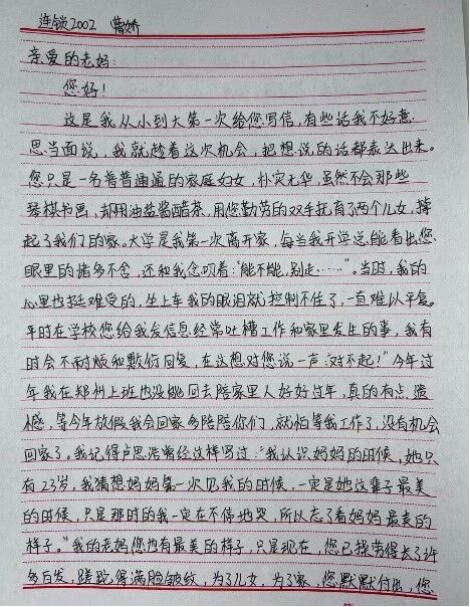 连锁2002 曹娇
亲爱的老妈：
您好！
这是我从小到大第一次给您写信，有些话我不好意
思当面说，我就趁着这次机会，把想说的话都表达出来。
您只是一名普普通通的家庭妇女，朴实无华，虽然不会那些
琴棋书画，却用油盐酱醋茶，用您勤劳的双手抚育了两个儿女，撑
起了我们的家。大学是我第一次离开家，每当我开学总能看出您
眼里的诸多不舍，还和我念叨着："能不能，别走……"。当时，我的
心里也挺难受的，坐上车我的眼泪就控制不住了，一直难以平复。
平时在学校您给我发信息经常吐槽工作和家里发生的事，我有
时会不耐烦和敷衍回复，在这想对您说一声："对不起！"今年过
年我在郑州上班也没能回去陪家里人好好过年，真的有点遗
憾，等今年放假我会回家多陪陪你们，就怕等我工作了，没有机会
回家了。我记得卢思浩曾经这样写过："我认识妈妈的时候，她只
有23岁，我猜想妈妈第一次见我的时候，一定是她这辈子最美
的时候，只是那时的我一定在不停地哭，所以忘了看妈妈最美的
样子。"我的老妈您也有最美的样子，只是现在，您已操劳得长了许
多白发，蹉跎得满脸皱纹，为了儿女，为了家，您默默付出，您